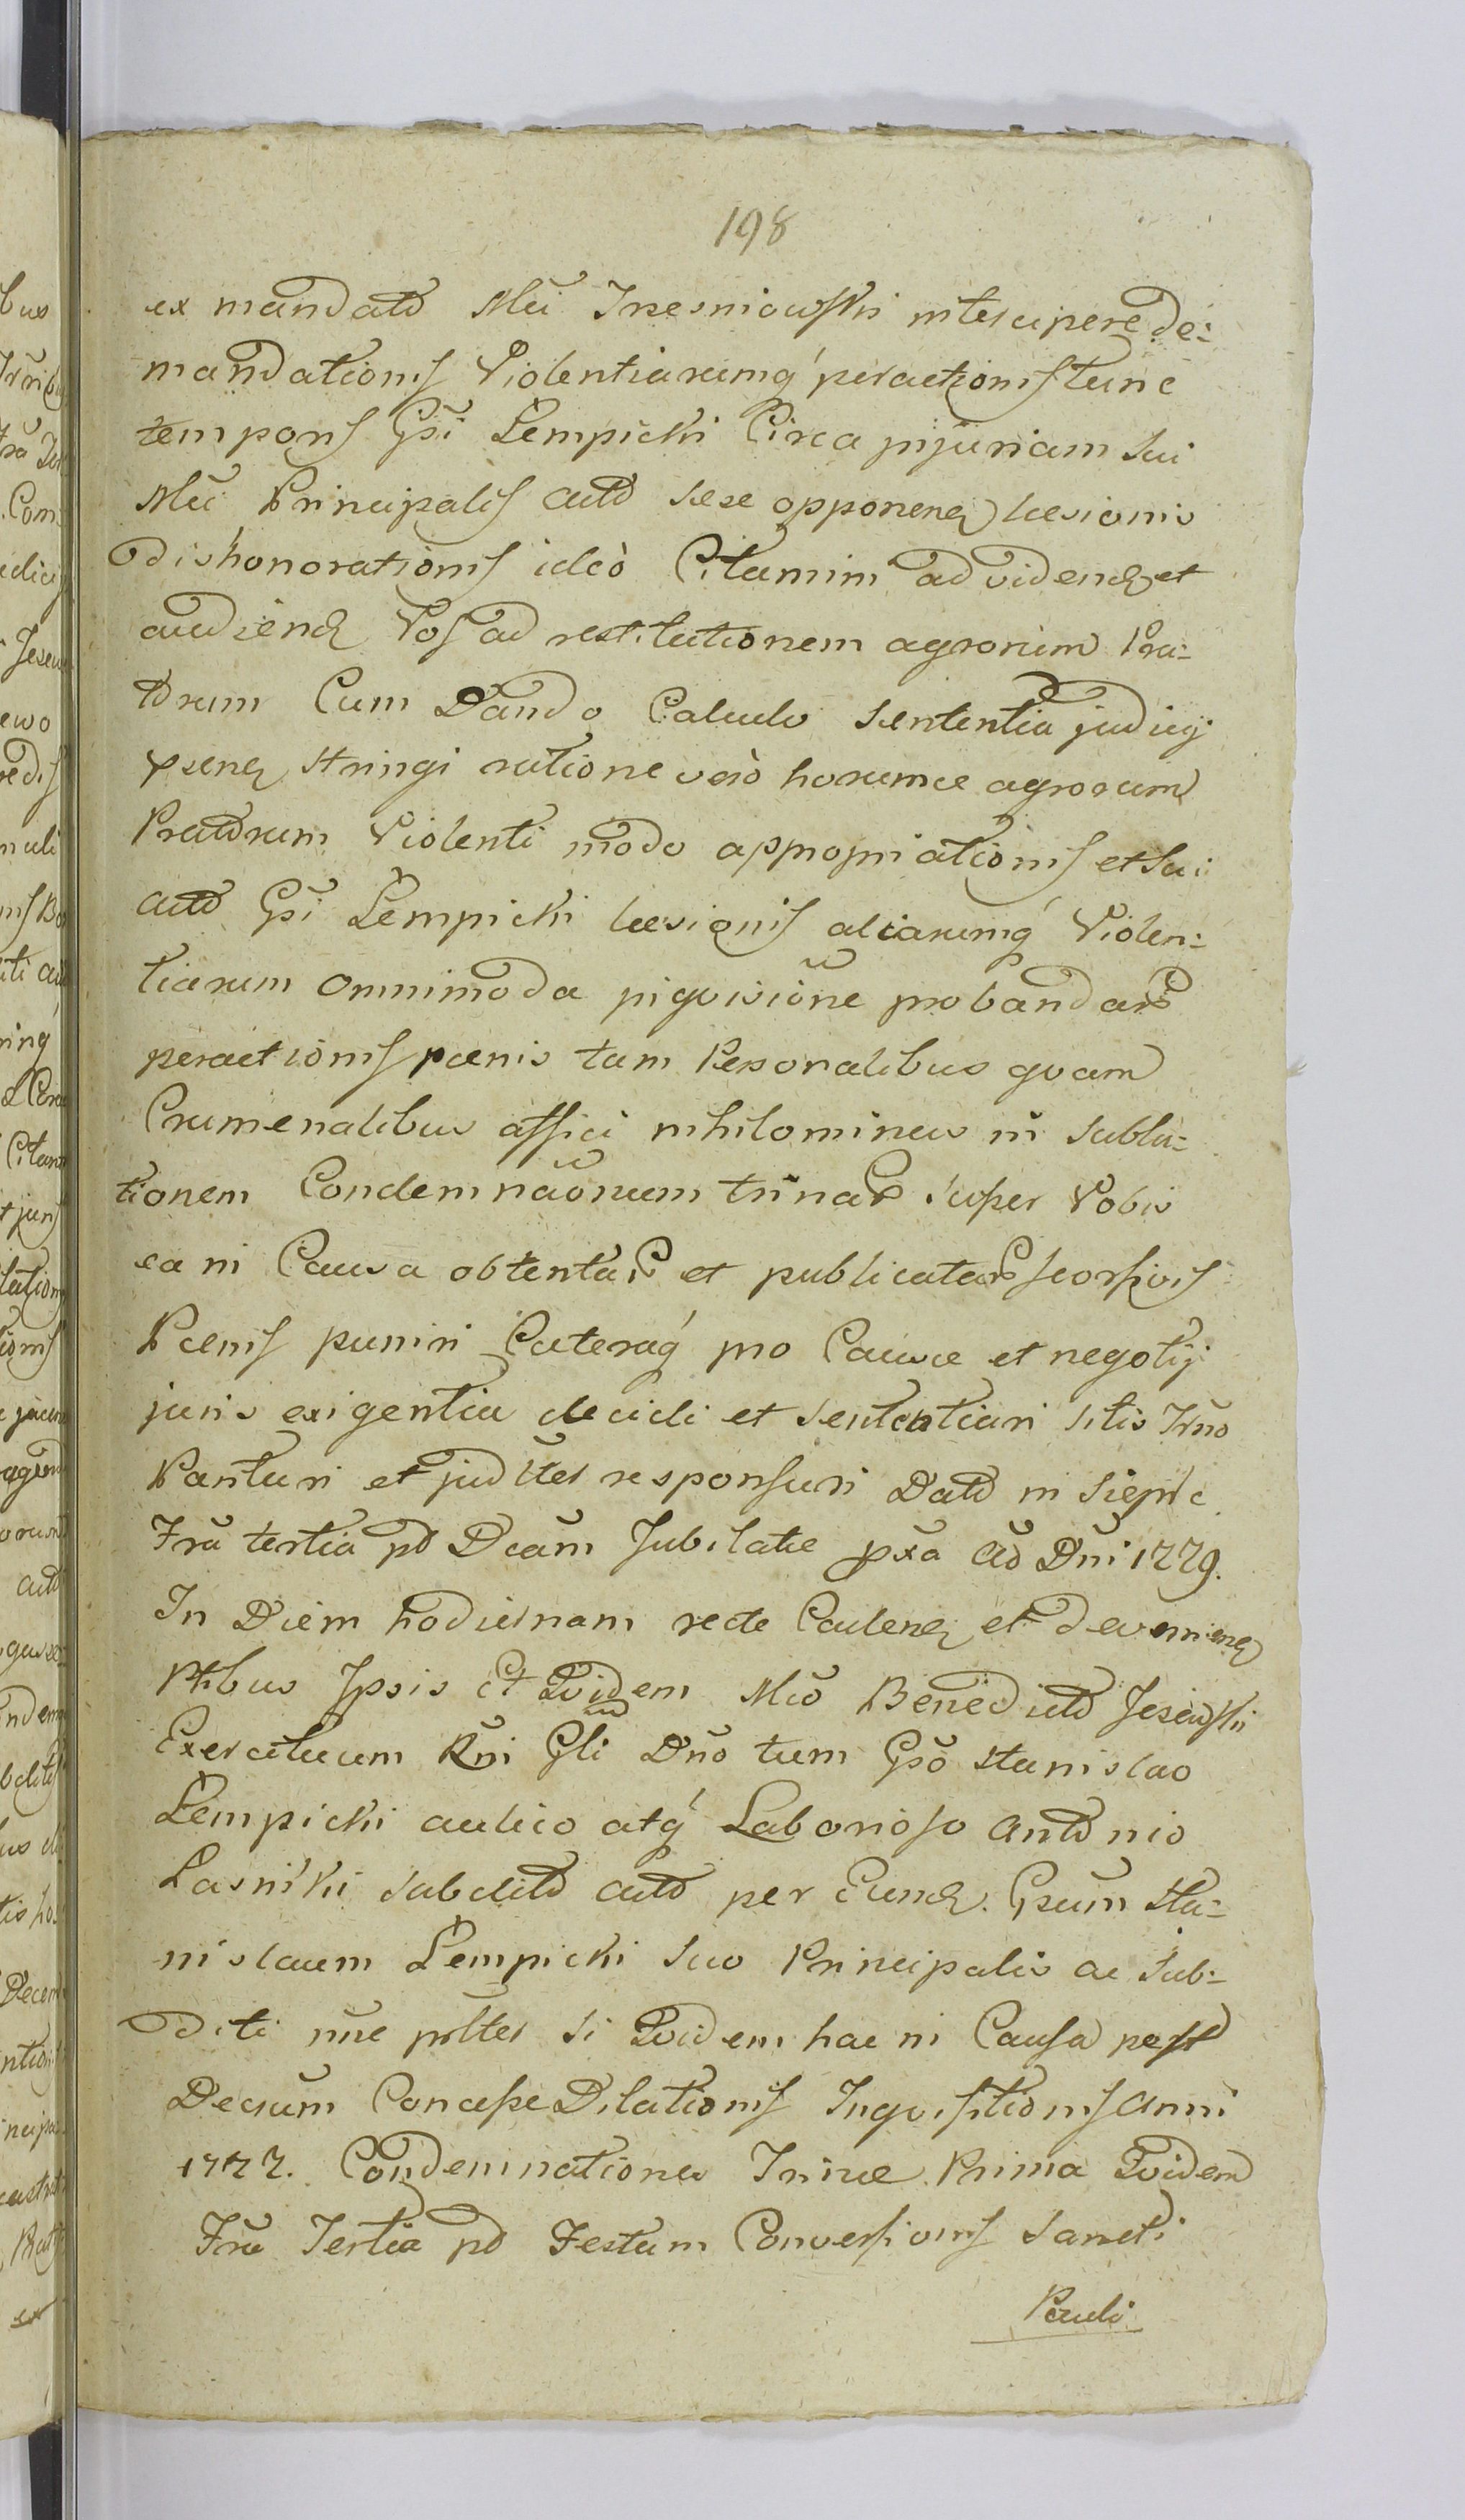 198
ex mandato Mci Trzesniowski intercipere de:
mandationis Violentiarumq́ peractionis tunc
temporis Gsi Lempicki Circa injuriam sui
Mci Principalis acto sese opponeng læsionis
dishonorationis ideò Citamini ad videng et
audiend Vos ad restitutionem agrorum Pra:
torum Cum Dando Calculo sententia judicij
pseng stringi ratione verò horumce agrorum
Pratorum Violenti modo appropriationis et sui
acto Gsi Lempicki læsionis aliarumq́ Violen:
tiarum omnimoda inqvisiõne probandar
peractionis pænis tam Personalibus qvam
Crumenalibus affici nihilominus in subla:
tionem Condemnaõnum trinar super Vobis
ea in Causa obtentar et publicatar seorsivis
Pænis puniri Cæteraq́ pro Causæ et negotij
juris exigentia decidi et sententiari sitis Trño
Parituri et judltes responsuri Dato in Siepĩc
Fra tertia po Dcam Jubilate pxa Ao Dñi 1779.
In Diem hodiernam recte Cadeng et devenieng
Ptibus Ipsis Et Qvidem Mco Benedicto Jezewski
Exercituum Rni Gli Dño tum Gso Stanislao
Lempicki aulico atq́ Laborioso Antonio
Lasniki subdito acto per Eund. Gsum Sta:
nislaum Lempicki suo Principalis ac sub:
diti nne prltes si Qvidem hac in Causa post
Decsum Concessæ Dilationis Inqvisitionis Anni
1777. Condemnationes Trinæ Prima Qvidem
Fra Tertia po Festum Conversionis Sancti
Pauli